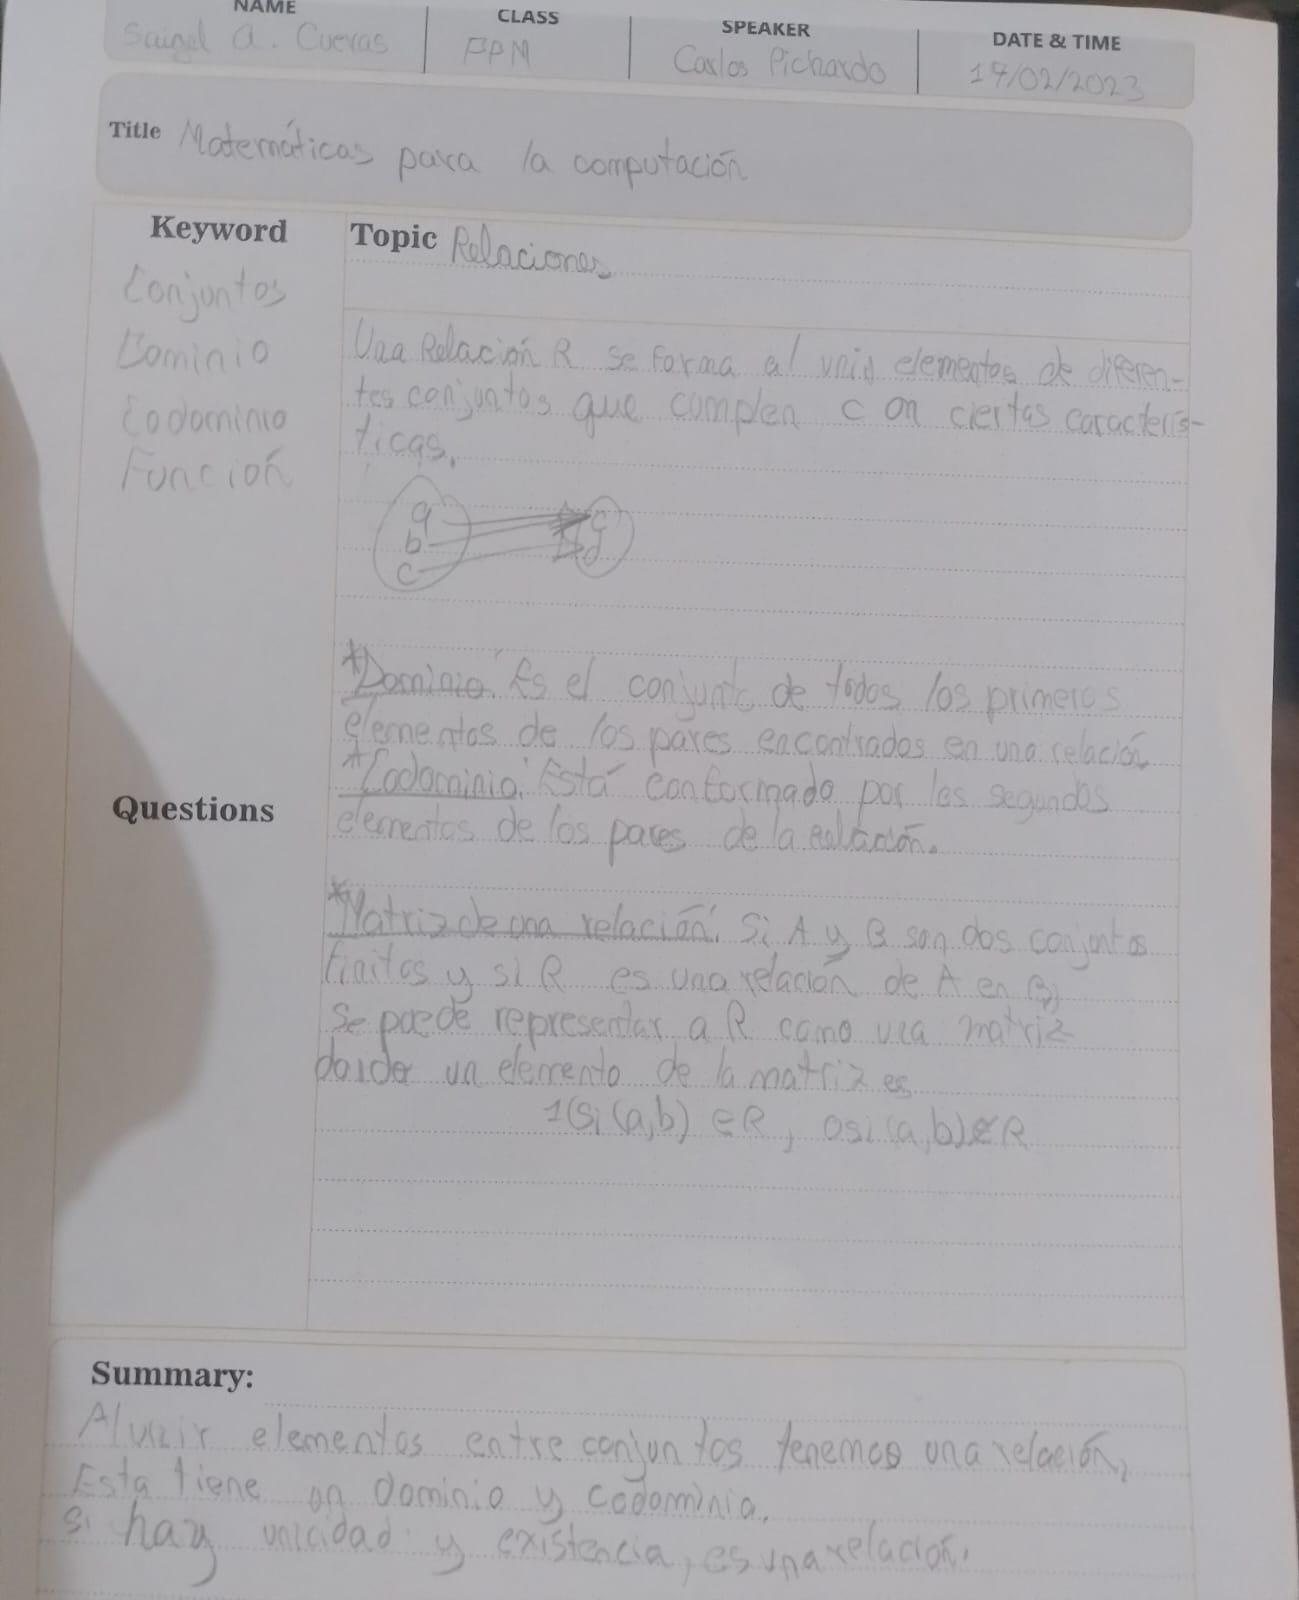 NAME CLASS SPEAKER DATE & TIME
A. Cuevas PPM Carlos Pichardo 17/02/2023
Title Matemáticas para la computación
Keyword
Conjuntos
Dominio
Codominio
Función
Topic Relaciones
Una Relación R se forma al unir elementos de diferen-
tes conjuntos que cumplen con ciertas caracterís-
ticas.
a
b
c
c
d
*Dominio: Es el conjunto de todos los primeros
elementos de los pares encontrados en una relación
*Codominio: Está conformado por los segundos
elementos de los pares de la relación.
Questions
*Matriz de una relación: Si A y B son dos conjuntos
finitos y si R es una relación de A en B,
se puede representar a R como una matriz
donde un elemento de la matriz es
1(si (a,b) ∈R, 0si (a,b)∉R
Summary:
Al unir elementos entre conjuntos tenemos una relación,
Esta tiene un dominio y codominio.
si hay unicidad y existencia, es una relación.